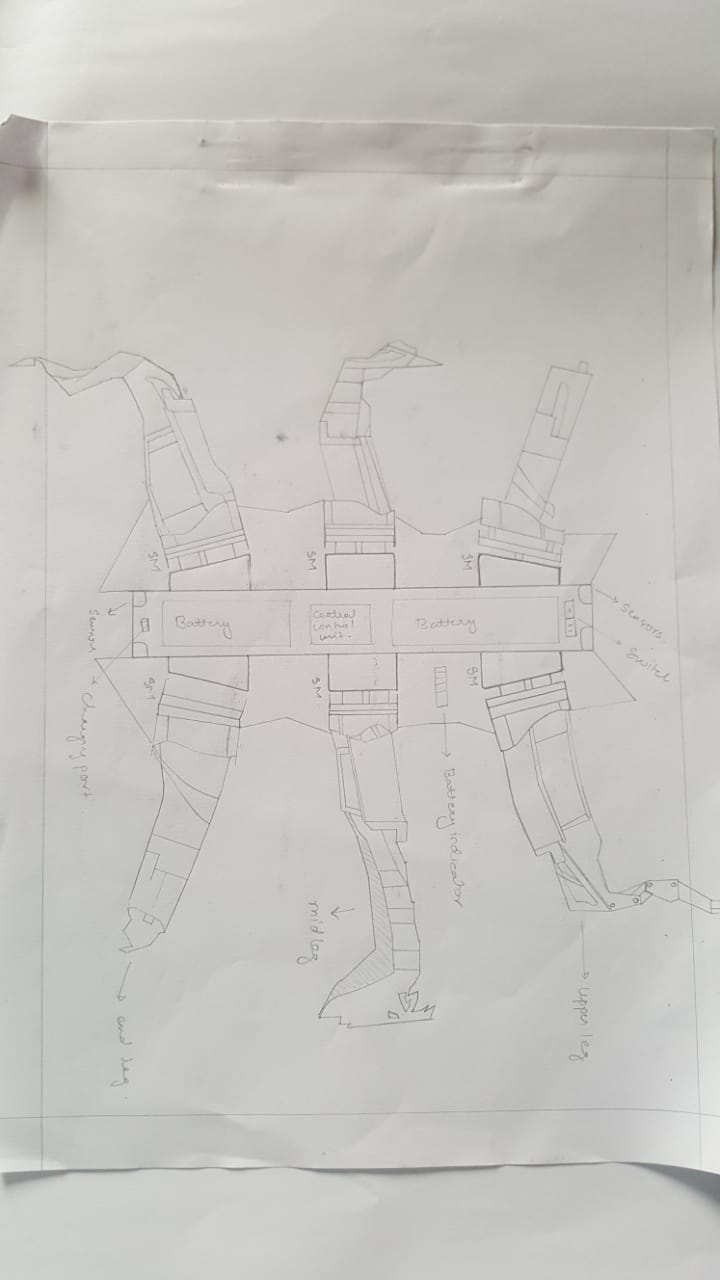 Sensors
Switch
upper leg
SM
SM
Battery
Battery indicator
Control
unit.
SM
SM
mid leg
Battery
SM
SM
end leg.
Sensors
Charging port